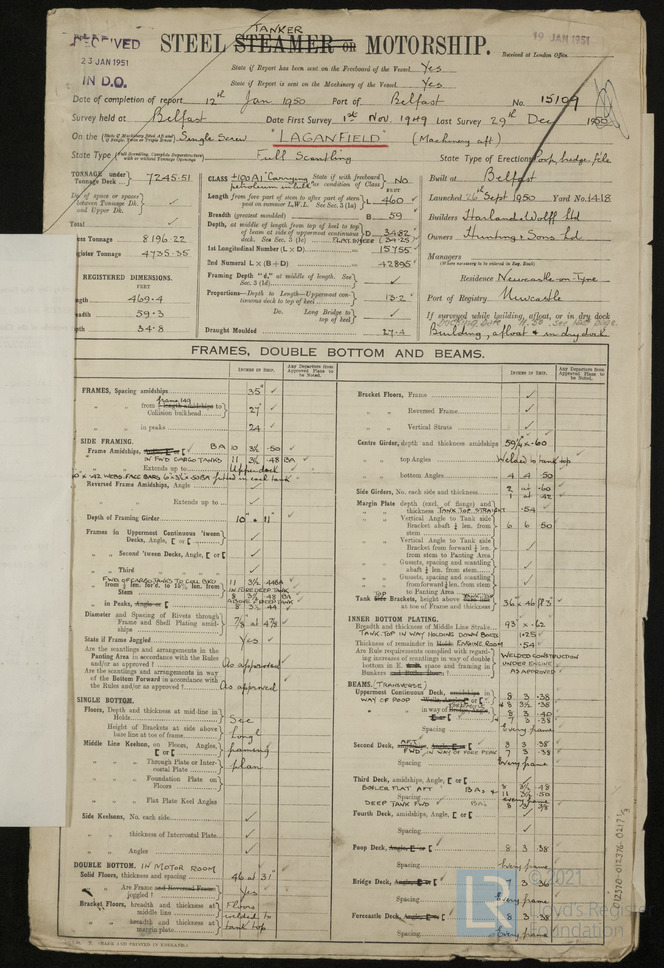 TANKER
RECEIVED
23 JAN 1951
IN D.O.
19 JAN 1951
STEEL STEAMER OR MOTORSHIP.
Received at London Office
State if Report has been sent on the Freeboard of the Vessel Yes
State if Report is sent on the Machinery of the Vessel Yes
Date of completion of report 12th Jan 1950 Port of Belfast No. 15109
Survey held at Belfast Date First Survey 1st Nov. 1949 Last Survey 29th Dec 1950
On the Single Screw "LAGANFIELD" (Machinery aft)
State Type Full Scantling State Type of Erections Poop, bridge, f'cle
TONNAGE under Tonnage Deck 7245.51
Do. of space or spaces between Tonnage Dk. and Upper Dk.
Total
Gross Tonnage 8196.22
Register Tonnage 4735.35
REGISTERED DIMENSIONS.
FEET
Length 469.4
Breadth 59.3
Depth 34.8
CLASS +100A1 "Carrying petroleum in bulk" State if with freeboard as condition of Class No
FEET
Length from fore part of stem to after part of stern post in summer L.W.L. See Sec. 3 (1a) L 460
Breadth (greatest moulded) B 59
Depth, at middle of length from top of keel to top of beam at side of uppermost continuous deck. See Sec. 3 (1c) D 34.82
1st Longitudinal Number (L × D) 15755
2nd Numeral L × (B+D) 42895
Framing Depth "d," at middle of length. See Sec. 3 (1d)
Proportions—Depth to Length—Uppermost continuous deck to top of keel 13.2
Do. Long Bridge to top of keel
Draught Moulded 27.4
Built at Belfast
Launched 26th Sept 1950 Yard No. 1418
Builders Harland & Wolff Ltd
Owners Hunting & Sons Ld
Managers
(Where necessary to be entered in Reg. Book)
Residence Newcastle-on-Tyne
Port of Registry Newcastle
If surveyed while building, afloat, or in dry dock
Building, afloat & in dry dock
FRAMES, DOUBLE BOTTOM AND BEAMS.
INCHES IN SHIP. Any Departure from Approved Plans to be Noted.
FRAMES, Spacing amidships 35"
" " from frame 149 to Collision bulkhead 27"
" " in peaks 24
SIDE FRAMING.
Frame Amidships, BA 10 3½ .50
IN FWD CARGO TANKS 11 3½ .48 BA
" " Extends up to Upper deck
Reversed Frame Amidships, Angle
" " Extends up to
Depth of Framing Girder 10" & 11"
Frames in Uppermost Continuous 'tween Decks, Angle, [ or [
" " Second 'tween Decks, Angle, [ or [
" " Third
FWD OF CARGO TANKS TO COLL BHD
Stem 11 3½ .44 BA
" in Peaks, Angle or [ 8 3½ .44
Diameter and Spacing of Rivets through Frame and Shell Plating amidships 7/8 at 4 7/8
State if Frame Joggled Yes
Are the scantlings and arrangements in the Panting Area in accordance with the Rules and/or as approved? As approved
Are the scantlings and arrangements in way of the Bottom Forward in accordance with the Rules and/or as approved? As approved
SINGLE BOTTOM.
Floors, Depth and thickness at mid-line in Holds See
Height of Brackets at side above base line at toe of frame Longl
Middle Line Keelson, on Floors, Angles, [ or [ framing
" " Through Plate or Intercostal Plate plan
" " Foundation Plate on Floors
" " Flat Plate Keel Angles
Side Keelsons, No. each side
" " thickness of Intercostal Plate
" " Angles
DOUBLE BOTTOM. IN MOTOR ROOM
Solid Floors, thickness and spacing .46 at 31"
" " Are Frame and Reversed Frame joggled? Yes
Bracket Floors, breadth and thickness at middle line Floors welded to
" " breadth and thickness at margin plate tank top
Bracket Floors, Frame
" " Reversed Frame
" " Vertical Struts
Centre Girder, depth and thickness amidships 59¼ × .60
" " top Angles Welded to tank top
" " bottom Angles 4 4 50
Side Girders, No. each side and thickness 2 at .60
1 at .42
Margin Plate depth (excl. of flange) and thickness TANK TOP STRAIGHT .54
" " Vertical Angle to Tank side Bracket abaft ¼ len. from stem 6 6 50
" " Vertical Angle to Tank side Bracket from forward ¼ len. from stem to Panting Area
" " Gussets, spacing and scantling abaft ¼ len. from stem
" " Gussets, spacing and scantling from forward ¼ len. from stem to Panting Area
Tank TOP Brackets, height above at toe of Frame and thickness 36 × 46 fl 3"
INNER BOTTOM PLATING.
Breadth and thickness of Middle Line Strake 93" × .62
TANK TOP IN WAY HOLDING DOWN BOLTS 1.25
Thickness of remainder in ENGINE ROOM .54
Are Rule requirements complied with regarding increases of scantlings in way of double bottom in E. space and framing in Bunkers WELDED CONSTRUCTION UNDER ENGINE AS APPROVED
BEAMS. (TRANSVERSE)
Uppermost Continuous Deck, amidships in 8 3 .38
WAY OF POOP
Spacing Every frame
Second Deck, AFT 8 3 .38
FWD, IN WAY OF FORE PEAK 7 3 .38
Spacing Every frame
Third Deck, amidships, Angle, [ or [
BOILER FLAT AFT BAs 8 3½ .48
11 3½ .50
Spacing every frame
DEEP TANK FWD BA 8 3 3/8
Fourth Deck, amidships, Angle, [ or [
Spacing
Poop Deck, Angle, [ or [ 8 3 .38
Spacing Every frame
Bridge Deck, Angle, [ or [ 7 3 .36
Spacing Every frame
Forecastle Deck, Angle, [ or [ 8 3 .38
Spacing Every frame
012376-012376-0217 1/3
LR © 2021
Lloyd's Register
Foundation
(MADE AND PRINTED IN ENGLAND.)